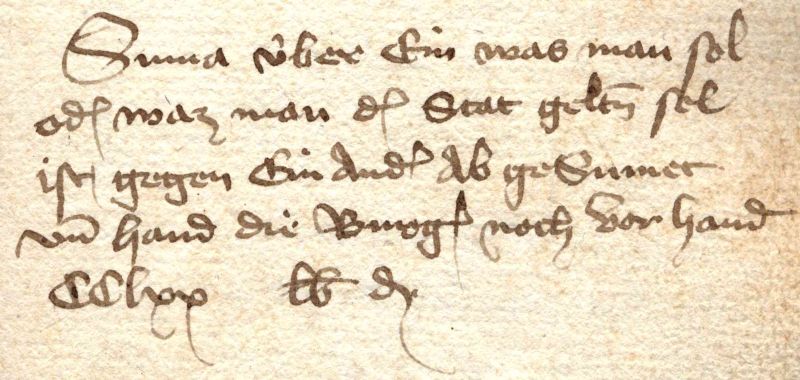 Suma v̊ber Ein was man sol
od' waz man d' Stat geltn̄ sol
ist gegen Ein And' Ab geSumet
vn̄ hand die Burg' noch vor hand
CClxx lb dr